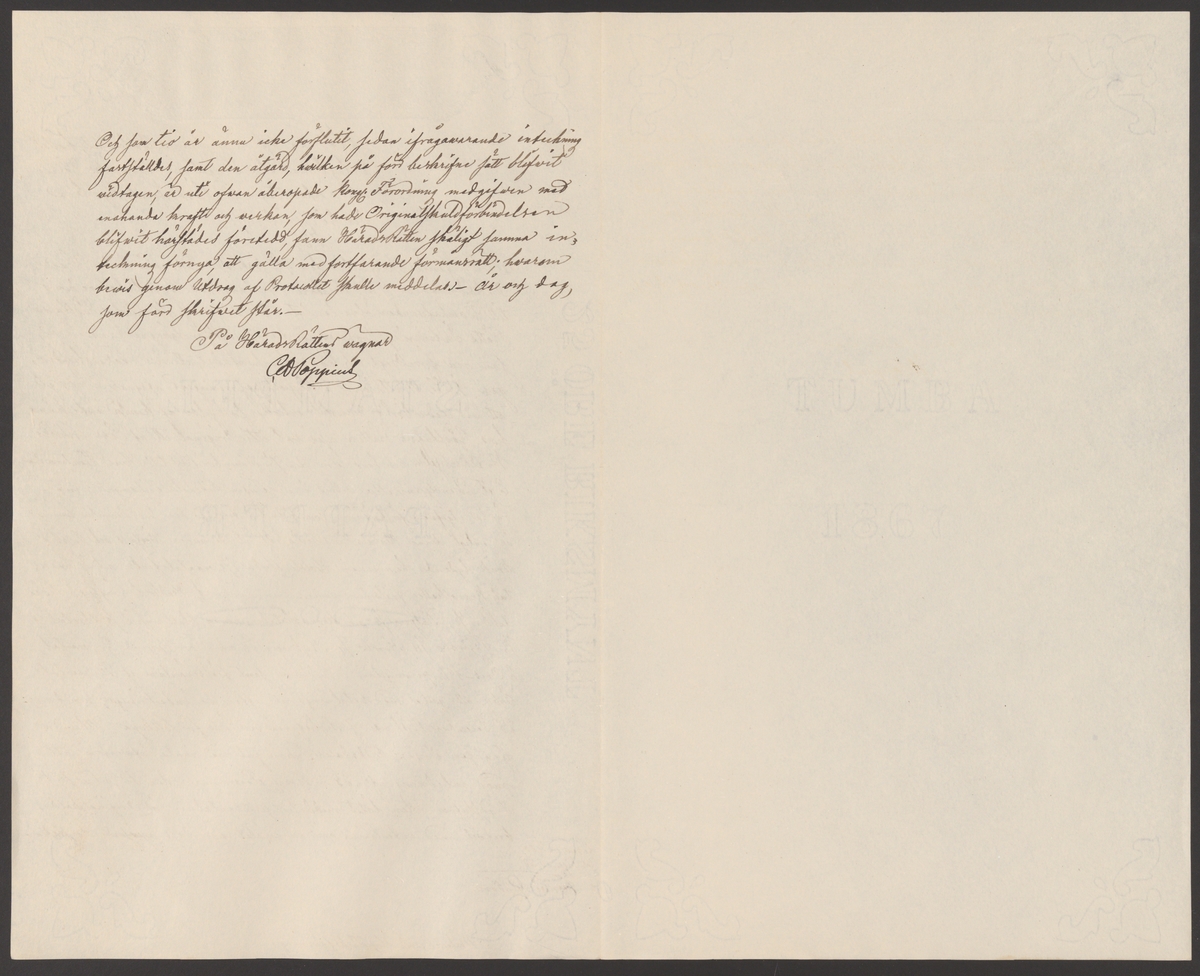 Och som tio år ännu icke förflutit, sedan ifrågawarande inteckning
fastställdes, samt den åtgärd, hwilken på förd beskrifne sätt blifwit
widtagen, är uti ofwan åberopade Kongl. Förordning medgifwen med
enahanda kraft och werkan, som hade Originalskuldförbindelsen
blifwit härstädes företedd, fann HäradsRätten skäligt samma in-
teckning förnya, att gälla med fortfarande förmånsrätt; hwarom
bewis genom Utdrag af Protocollet skulle meddelas.— År och dag,
som förd skrifwet står.—
På HäradsRättens wägnar
CD Poppius